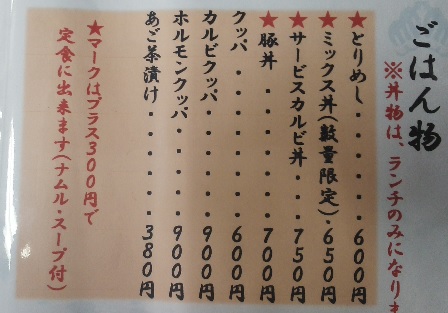 ごはん物
※丼物は、ランチのみになりま
★とりめし・・・・・・600円
★ミックス丼(数量限定)・650円
★サービスカルビ丼・・・750円
★豚丼・・・・・・・・700円
クッパ・・・・・・・・600円
カルビクッパ・・・・・900円
ホルモンクッパ・・・・900円
あご茶漬け・・・・・・380円
★マークはプラス300円で
定食に出来ます(ナムル・スープ付)